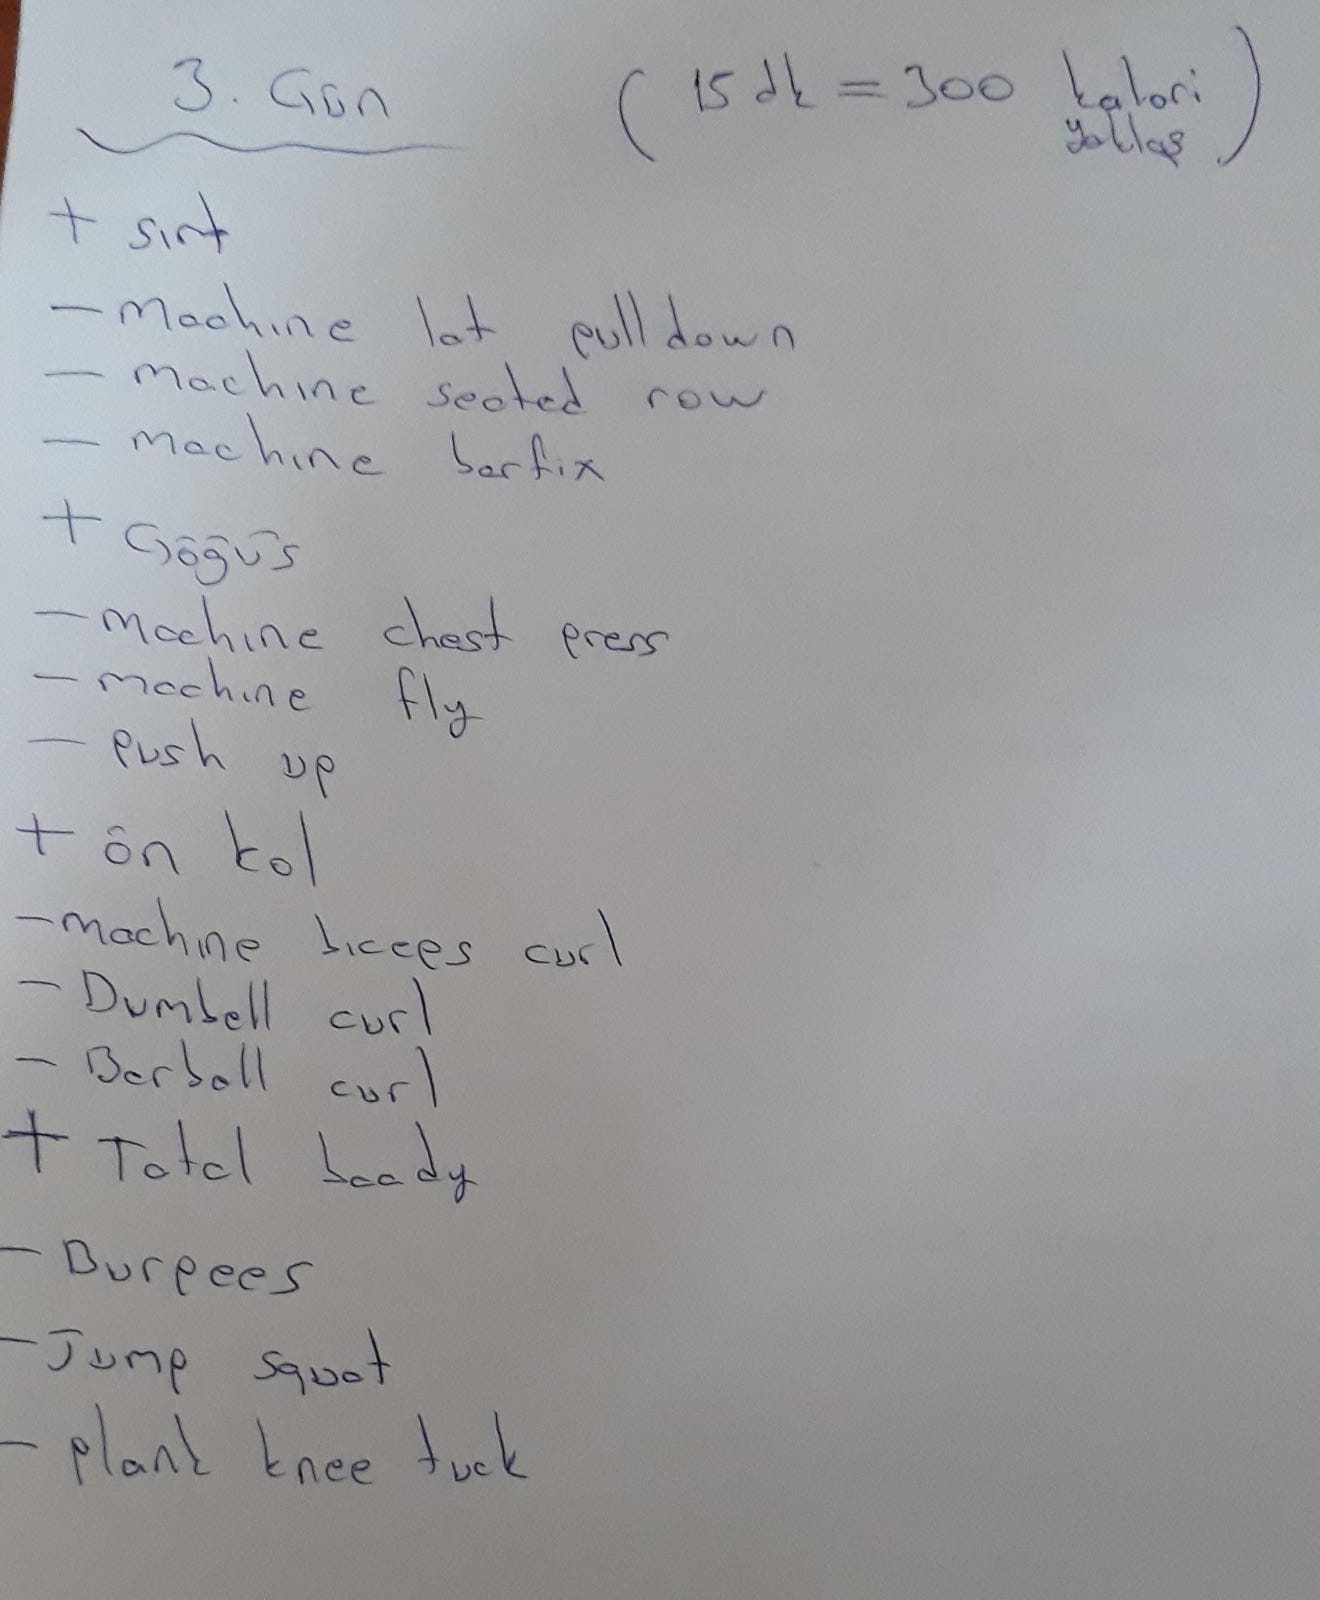 3. Gün ( 15 dk = 300 kalori
yaklaş )
+ sırt
- machine lat pulldown
- machine seated row
- machine barfix
+ Göğüs
- machine chest press
- machine fly
- push up
+ ön kol
- machine biceps curl
- Dumbell curl
- Barball curl
+ Total boady
- Burpees
- Jump squat
- plank knee tuck